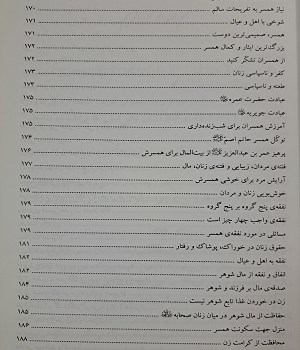 نیاز همسر به تفریحات سالم ۱۷۰
شوخی با اهل و عیال ۱۷۱
همسر، صمیمی‌ترین دوست ۱۷۱
بزرگ‌ترین ایثار و کمال همسر ۱۷۲
از همسران تشکر کنید ۱۷۲
کفر و ناسپاسی زنان ۱۷۳
طعنه و ناسپاسی ۱۷۳
عبادت حضرت عمره ۱۷۵
عبادت جویریه ۱۷۵
آموزش همسران برای شب‌زنده‌داری ۱۷۵
توکّل همسر حاتم اصمّ ۱۷۴
پرهیز عمر بن عبدالعزیز از بیت‌المال برای همسرش ۱۷۶
فتنه‌ی مردان، زیبایی و فتنه‌ی زنان، مال ۱۷۷
آرایش مرد برای خوشی همسرش ۱۷۸
خوش‌بویی زنان و مردان ۱۷۸
نفقه‌ی پنج گروه بر پنج گروه ۱۷۹
نفقه‌ی واجب چهار چیز است ۱۷۹
مسائلی در مورد نفقه‌ی همسر ۱۷۹
حقوق زنان در خوراک، پوشاک و رفتار ۱۸۱
نفقه به اهل و عیال ۱۸۲
انفاق و نفقه از مال شوهر ۱۸۲
صدقه‌ی مال بر فرزند و شوهر ۱۸۴
زن در خوردن غذا تابع شوهر نیست ۱۸۵
حفاظت از مال شوهر در میان زنان صحابه ۱۸۵
منزل جهت سکونت همسر ۱۸۶
محافظت از کرامت زن ۱۸۸